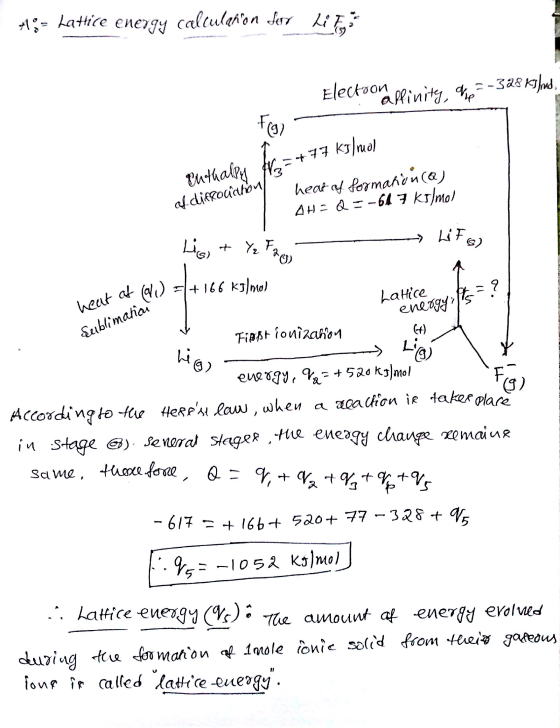 Lattice energy calculation for LiF(g):-
Electron affinity, q4 = -328 KJ/mol.
F(g)
enthalpy of dissociation
q3 = +77 KJ/mol
heat of formation (Q)
ΔH = Q = -617 KJ/mol
Li(s) + 1/2 F2(g) → LiF(s)
heat of (q1) Sublimation = +166 KJ/mol
Lattice energy, q5 = ?
First ionization
energy, q2 = +520 KJ/mol
Li(g)
Li(+)(g)
F-(g)
According to the Hess's law, when a reaction is takes place
in stage (or) several stages, the energy change remains
same. therefore, Q = q1 + q2 + q3 + q4 + q5
-617 = +166 + 520 + 77 - 328 + q5
∴ q5 = -1052 KJ/mol
∴ Lattice energy (q5): The amount of energy evolved
during the formation of 1mole ionic solid from their gaseous
ions is called "lattice-energy".